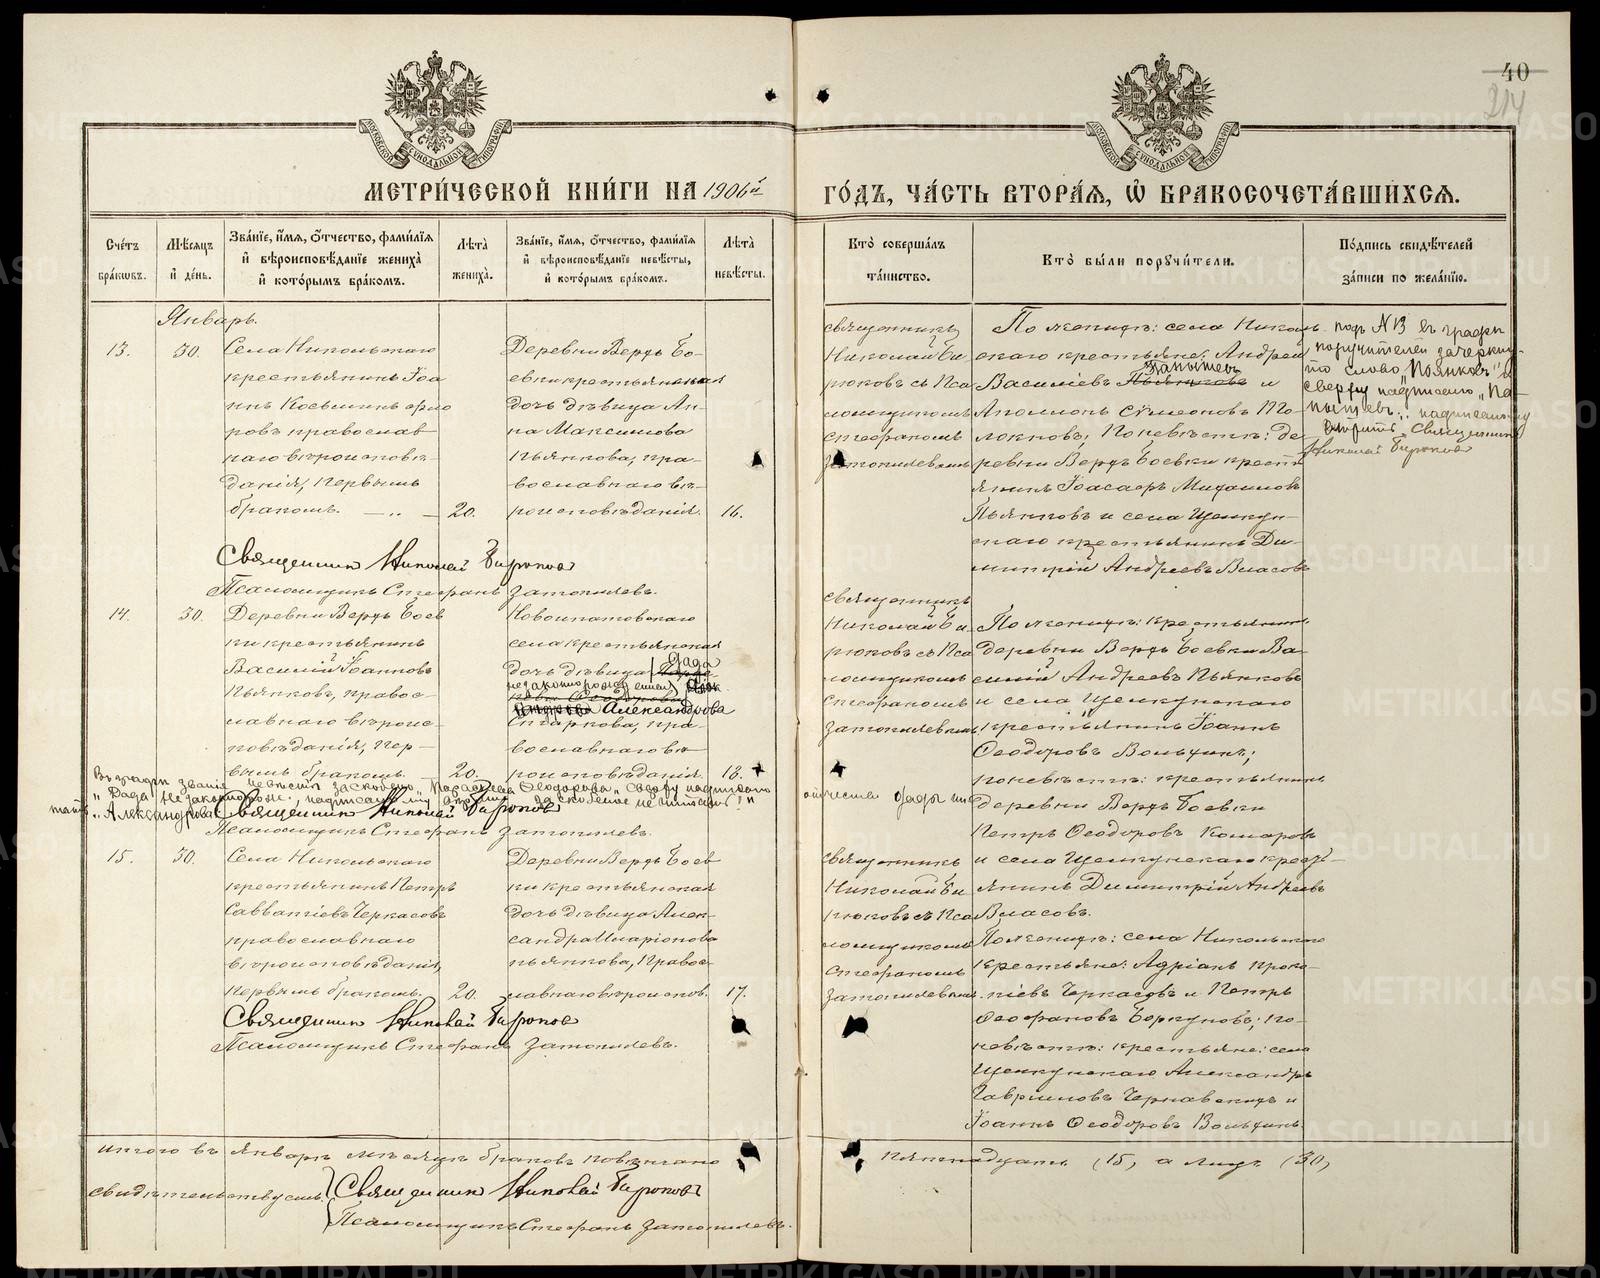 40
214
МЕТРИ́ЧЕСКОЙ КНИ́ГИ НА 1906й
ГО́ДЪ, ЧА́СТЬ ВТОРА́Я, Ѡ҆ БРАКОСОЧЕТА́ВШИХСЯ.
Сче́тъ бра́кѡвъ.
Мѣ́сяцъ и҆ де́нь.
Зва́нїе, и҆́мя, ѻ҆́тчество, фами́лїя и҆ вѣроисповѣ́данїе жениха̀ и҆ кото́рымъ бра́комъ.
Лѣ́та жениха̀.
Зва́нїе, и҆́мя, ѻ҆́тчество, фами́лїя и҆ вѣроисповѣ́данїе невѣ́сты, и҆ кото́рымъ бра́комъ.
Лѣ́та невѣ́сты.
Кто̀ соверша́лъ та́инство.
Кто̀ бы́ли порꙋчи́тели.
По́дпись свидѣ́телей за́писи по жела́нїю.
Январь.
13.
30.
Села Никольскаго
крестьянинъ Іоа
ннъ Косьминъ
православ
наго вѣроисповѣ-
данія, первымъ
бракомъ.
20.
Деревни Верхъ Бо-
евки крестьянская
дочь дѣвица Ан-
на Максимова
Пьянкова, пра-
вославнаго вѣ-
роисповѣданія.
16.
Священникъ
Николай Би
рюковъ съ Пса
ломщикомъ
Стефаномъ
Затопляевымъ
По женихѣ: села Николь
скаго крестьяне: Андрей
Васильевъ и
Аполлонъ Симеоновъ
По невѣстѣ: де
ревни Верхъ Боевки кресть
янинъ Іоасафъ Михаиловъ
Пьянковъ и села Щелкун-
скаго крестьянинъ Ди-
митрій Андреевъ Власовъ
подъ №13 въ графѣ
поручителей зачеркну-
то слово
сверху надписано
надписанному
вѣрить. Священникъ
Николай Бирюковъ
Священникъ Николай Бирюковъ
Псаломщикъ Стефанъ Затопляевъ.
14.
30.
Деревни Верхъ Боев
ки крестьянинъ
Василій Іоанновъ
Пьянковъ, правос-
лавнаго вѣроис-
повѣданія, пер-
вымъ бракомъ.
20.
Новоипатовскаго
села крестьянская
дочь дѣвица
незаконорожденная
Александрова
пра-
вославнаго вѣ-
роисповѣданія.
18.
Священникъ
Николай Би
рюковъ съ Пса
ломщикомъ
Стефаномъ
Затопляевымъ
По женихѣ: крестьянинъ
деревни Верхъ Боевки Ва-
силій Андреевъ Пьянковъ
и села Щелкунскаго
крестьянинъ Іоаннъ
Ѳеодоровъ Вольхинъ;
по невѣстѣ: крестьянинъ
деревни Верхъ Боевки
Петръ Ѳеодоровъ Комаровъ
и села Щелкунскаго кресть-
янинъ Димитрій Андреевъ
Власовъ.
Въ графѣ званіе невѣсты
Священникъ Николай Бирюковъ
Псаломщикъ Стефанъ Затопляевъ.
15.
30.
Села Никольскаго
крестьянинъ Петръ
Савватіевъ Черкасовъ
православнаго
вѣроисповѣданія,
первымъ бракомъ.
20.
Деревни Верхъ Боев
ки крестьянская
дочь дѣвица Алек-
сандра Иларіонова
Пьянкова, правос-
лавнаго вѣроиспов.
17.
Священникъ
Николай Би
рюковъ съ Пса
ломщикомъ
Стефаномъ
Затопляевымъ
По женихѣ: села Никольскаго
крестьяне: Адріанъ Проко-
піевъ Черкасовъ и Петръ
Ѳеофановъ по-
невѣстѣ: крестьяне: села
Щелкунскаго Александръ
Гавриловъ Чернавскихъ и
Іоаннъ Ѳеодоровъ Вольхинъ.
Священникъ Николай Бирюковъ
Псаломщикъ Стефанъ Затопляевъ.
Итого въ Январѣ мѣсяцѣ браковъ повѣнчано
пятнадцать (15) а лицъ (30)
Свидѣтельствуемъ: Священникъ Николай Бирюковъ
Псаломщикъ Стефанъ Затопляевъ.
METRIKI.GASO-URAL.RU